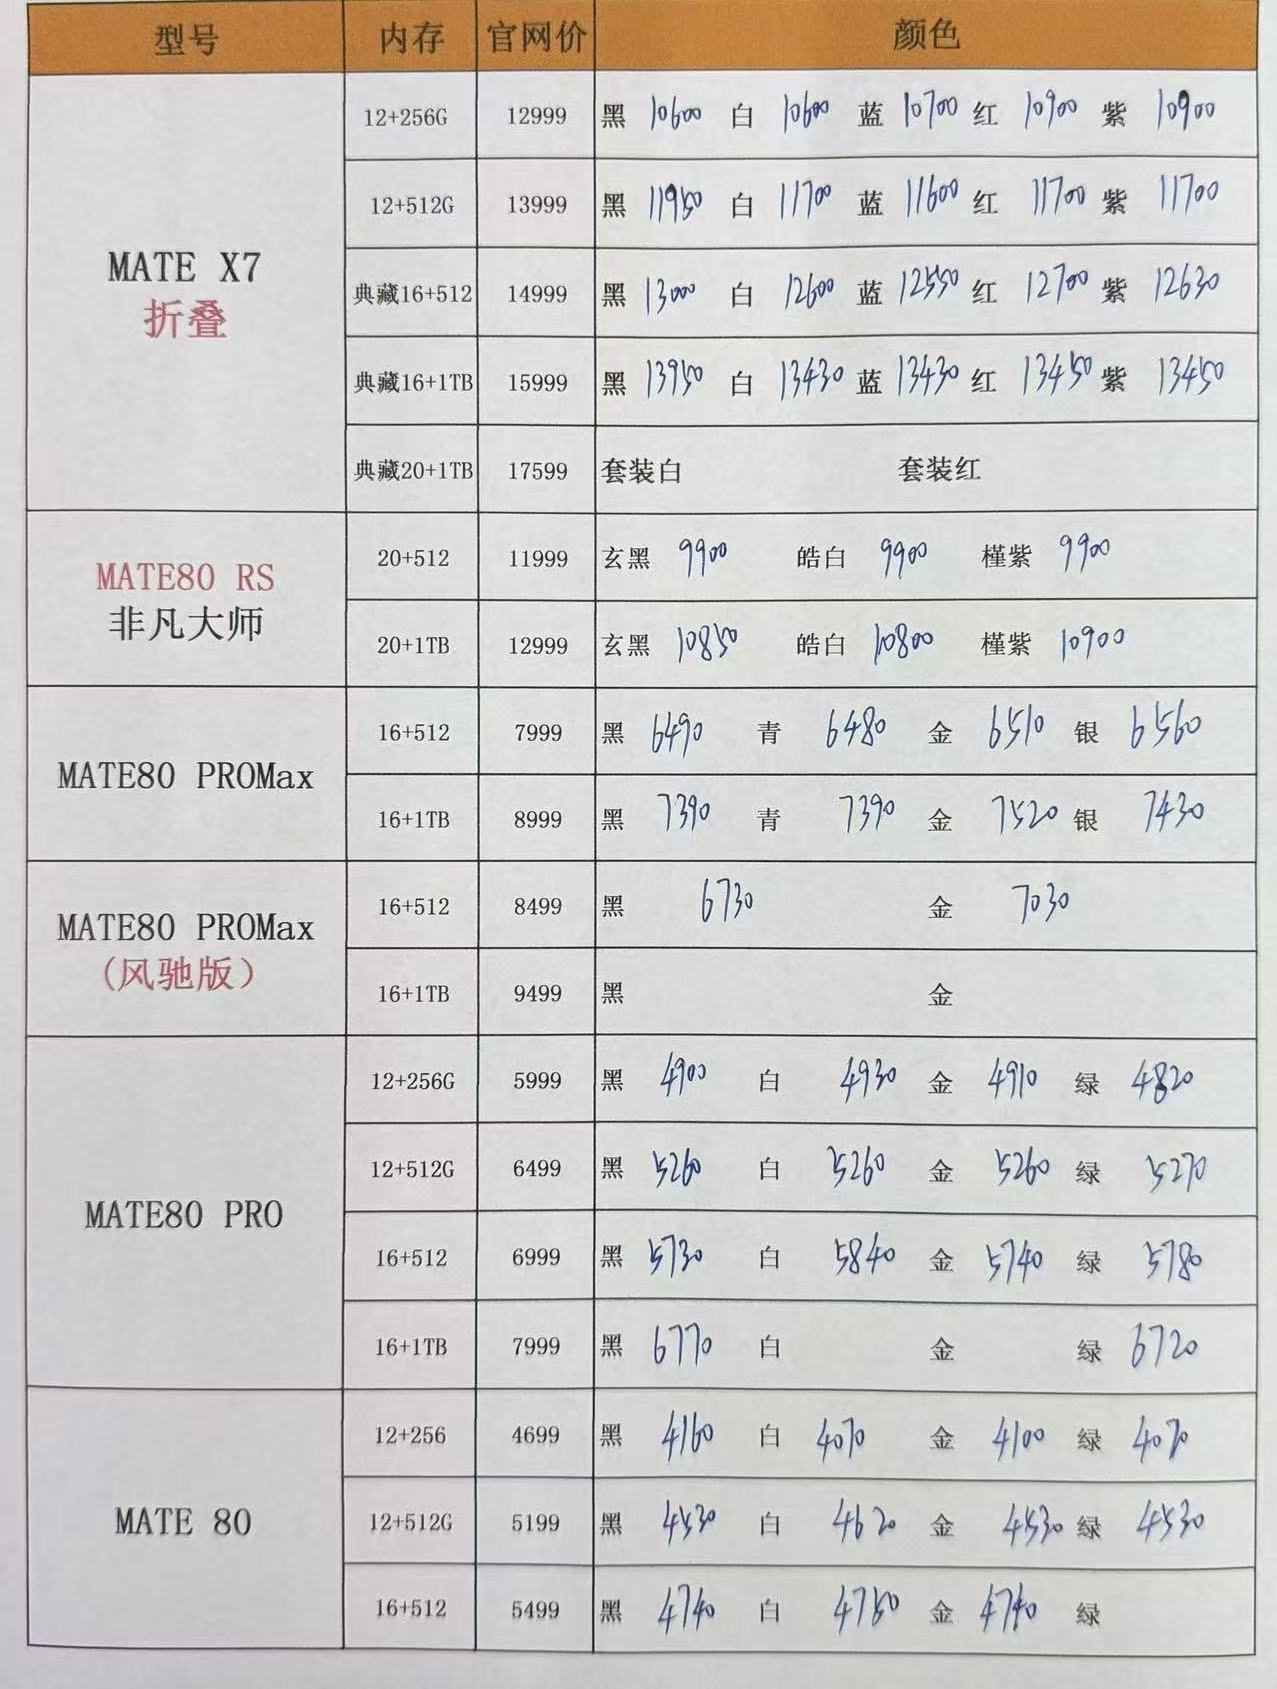 型号 内存 官网价 颜色
12+256G 12999 黑 10600 白 10600 蓝 10700 红 10900 紫 10900
12+512G 13999 黑 11950 白 11700 蓝 11600 红 11700 紫 11700
MATE X7
折叠
典藏16+512 14999 黑 13000 白 12600 蓝 12550 红 12700 紫 12630
典藏16+1TB 15999 黑 13950 白 13430 蓝 13430 红 13450 紫 13450
典藏20+1TB 17599 套装白 套装红
MATE80 RS
非凡大师
20+512 11999 玄黑 9900 皓白 9900 槿紫 9900
20+1TB 12999 玄黑 10850 皓白 10800 槿紫 10900
MATE80 PROMax
16+512 7999 黑 6490 青 6480 金 6510 银 6560
16+1TB 8999 黑 7390 青 7390 金 7520 银 7430
MATE80 PROMax
(风驰版)
16+512 8499 黑 6730 金 7030
16+1TB 9499 黑 金
MATE80 PRO
12+256G 5999 黑 4900 白 4930 金 4910 绿 4820
12+512G 6499 黑 5260 白 5260 金 5260 绿 5270
16+512 6999 黑 5730 白 5840 金 5740 绿 5780
16+1TB 7999 黑 6770 白 金 绿 6720
MATE 80
12+256 4699 黑 4160 白 4070 金 4100 绿 4070
12+512G 5199 黑 4530 白 4620 金 4530 绿 4530
16+512 5499 黑 4740 白 4750 金 4740 绿